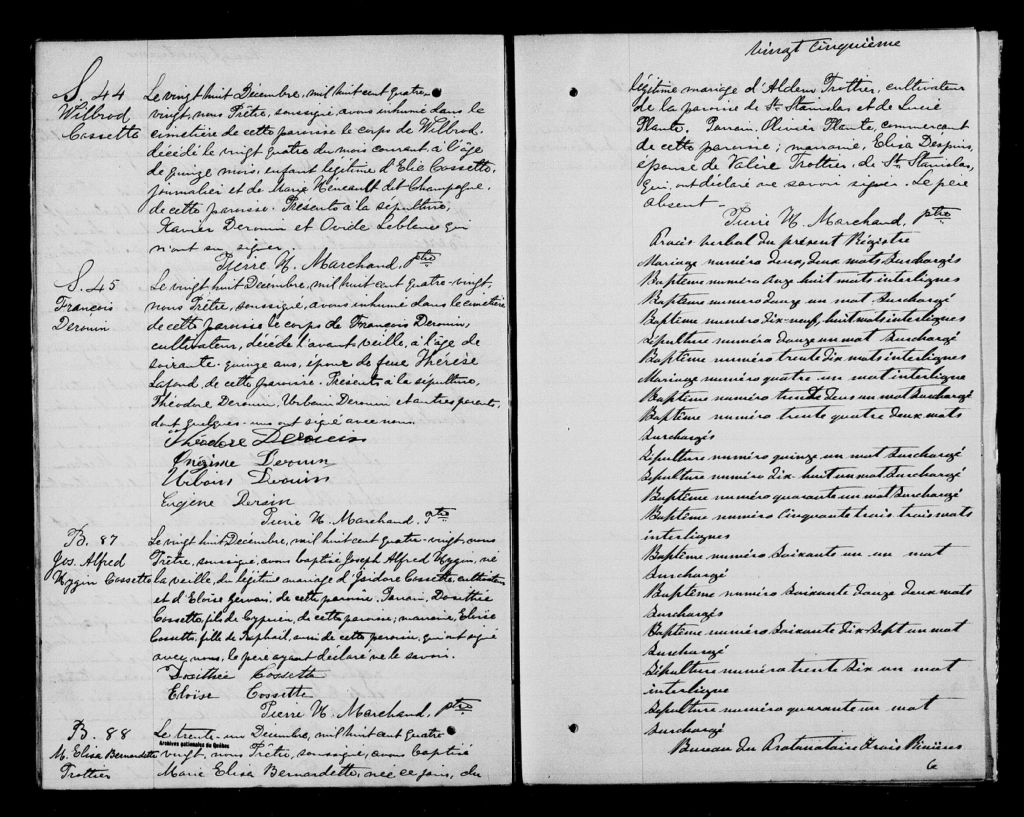 S. 44
Wilbrod
Cossette
Le vingt huit Décembre, mil huit cent quatre-
vingt, nous Prêtre, soussigné, avons inhumé dans le
cimetière de cette paroisse le corps de Wilbrod.
décédé le vingt quatre du mois courant, à l'âge
de quinze mois, enfant légitime d'Elie Cossette,
journalier et de Marie Heneault dit Champagne,
de cette paroisse. Présents à la sépulture,
Xavier Derouin et Ovide Leblanc qui
n'ont su signer.
Pierre H. Marchand, Ptre
S. 45
François
Derouin
Le vingt huit Décembre, mil huit cent quatre-vingt,
nous Prêtre, soussigné, avons inhumé dans le cimetière
de cette paroisse le corps de François Derouin,
cultivateur, décédé l'avant veille, à l'âge de
soixante-quinze ans, époux de feue Thérèse
Lafond, de cette paroisse. Présents à la sépulture,
Théodore Derouin, Urbain Derouin et autres parents,
dont quelques-uns ont signé avec nous.
Théodore Derouin
Onézime Derouin
Urbain Derouin
Eugène Deroin
Pierre H. Marchand, Ptre
B. 87
Jos. Alfred
Hygin Cossette
Le vingt huit Décembre, mil huit cent quatre-vingt, nous
Prêtre, soussigné, avons baptisé Joseph Alfred Hygin, né
la veille, du légitime mariage d'Isidore Cossette, cultivateur
et d'Eloïse Gervais, de cette paroisse. Parrain, Dosithée
Cossette, fils de Cyprien, de cette paroisse; marraine, Eloïse
Cossette, fille de Raphaël, aussi de cette paroisse, qui ont signé
avec nous, le père ayant déclaré ne le savoir.
Dosithée Cossette
Eloïse Cossette
Pierre H. Marchand, ptre
B. 88
M. Elisa Bernadette
Trottier
Le trente-un Décembre, mil huit cent quatre
Archives nationales du Québec
vingt, nous Prêtre, soussigné, avons baptisé
Marie Elisa Bernardette, née ce jour, du
Vingt cinquième
légitime mariage d'Aldem Trottier, cultivateur
de la paroisse de St. Stanislas et de Lucie
Plante. Parrain, Olivier Plante, commerçant
de cette paroisse; marraine, Elisa Despins,
épouse de Valère Trottier, de St. Stanislas,
qui ont déclaré ne savoir signer. Le père
absent -
Pierre H. Marchand, ptre
Procès verbal du présent Régistre
Mariage numéro deux, deux mots surchargés
Baptême numéro onze huit mots interlignes
Baptême numéro douze un mot surchargé
Baptême numéro dix-neuf, huit mots interlignes
Sépulture numéro douze un mot surchargé
Baptême numéro trente dix mots interlignes
Mariage numéro quatre un mot interligne
Baptême numéro trente deux un mot surchargé
Baptême numéro trente quatre deux mots
surchargés
Sépulture numéro quinze un mot surchargé
Sépulture numéro dix-huit un mot surchargé
Baptême numéro quarante un mot surchargé
Baptême numéro cinquante trois trois mots
interlignes
Baptême numéro soixante un un mot
surchargé
Baptême numéro soixante douze deux mots
surchargés
Baptême numéro soixante dix sept un mot
surchargé
Sépulture numéro trente six un mot
interligne
Sépulture numéro quarante un mot
surchargé
Bureau du Protonotaire Trois Rivières
6